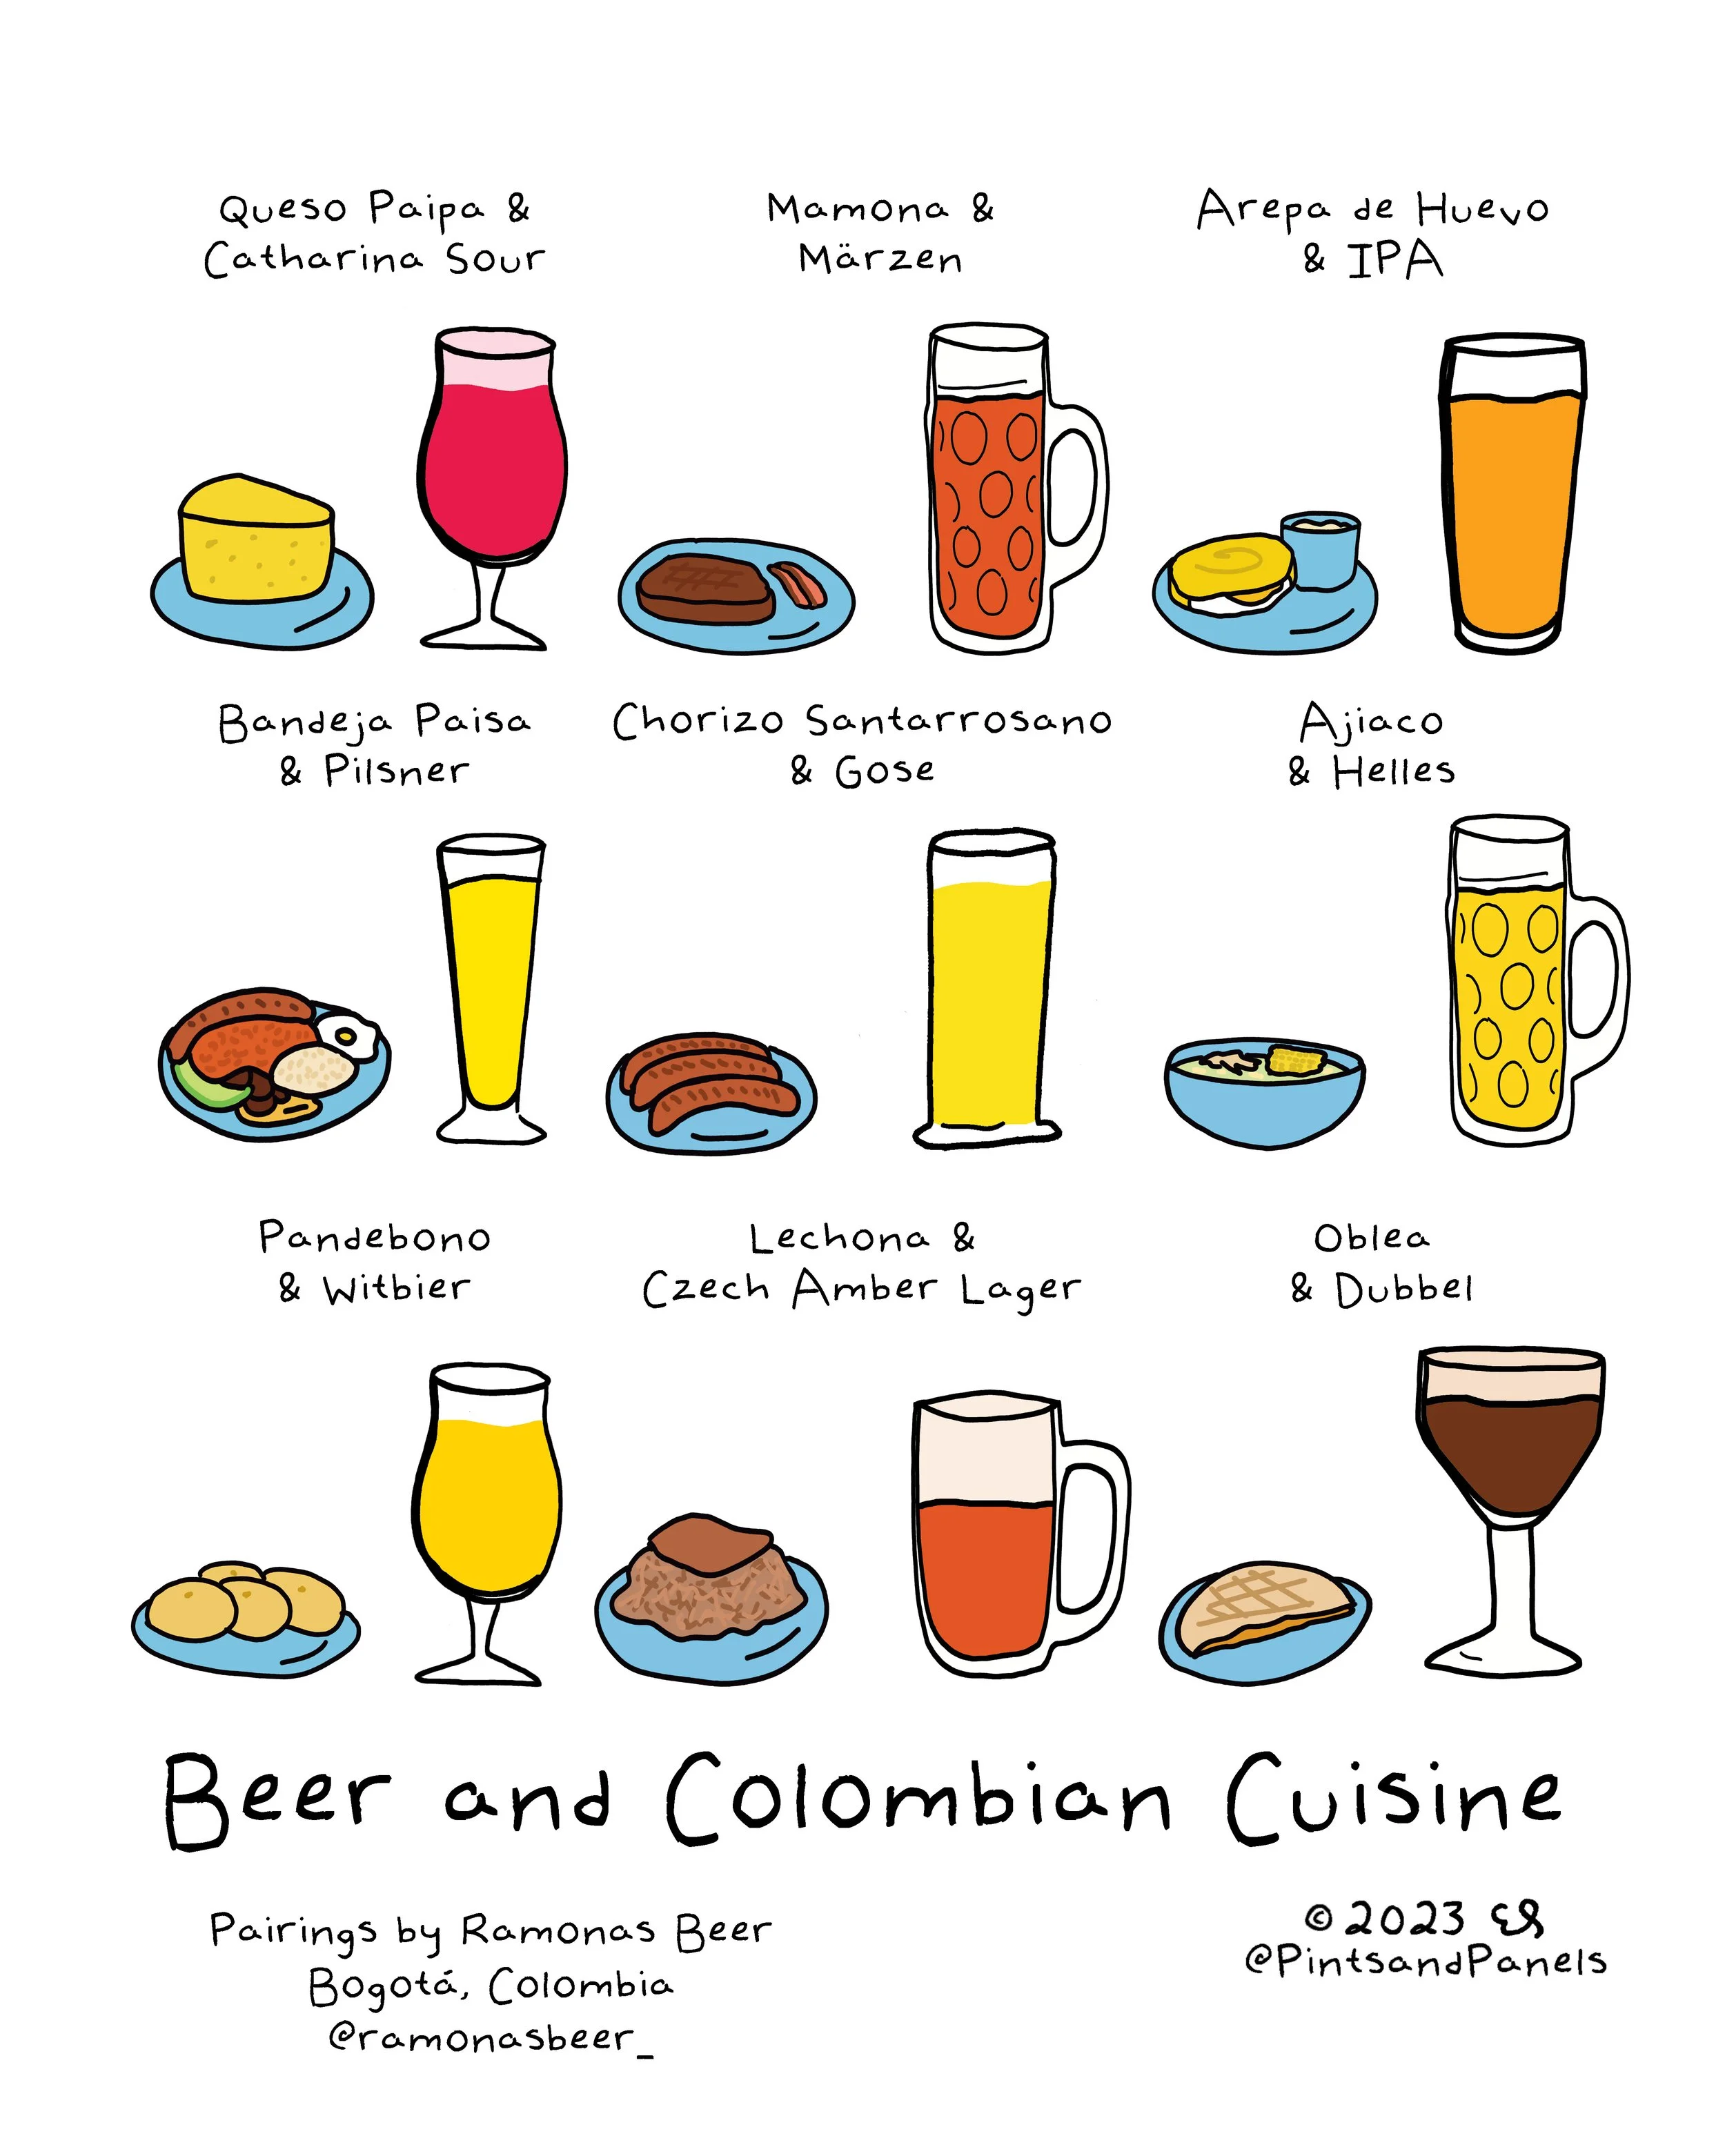 Queso Paipa &
Catharina Sour
Mamona &
Märzen
Arepa de Huevo
& IPA
Bandeja Paisa
& Pilsner
Chorizo Santarrosano
& Gose
Ajiaco
& Helles
Pandebono
& Witbier
Lechona &
Czech Amber Lager
Oblea
& Dubbel
Beer and Colombian Cuisine
Pairings by Ramonas Beer
Bogotá, Colombia
@ramonasbeer_
© 2023 ES
@PintsandPanels